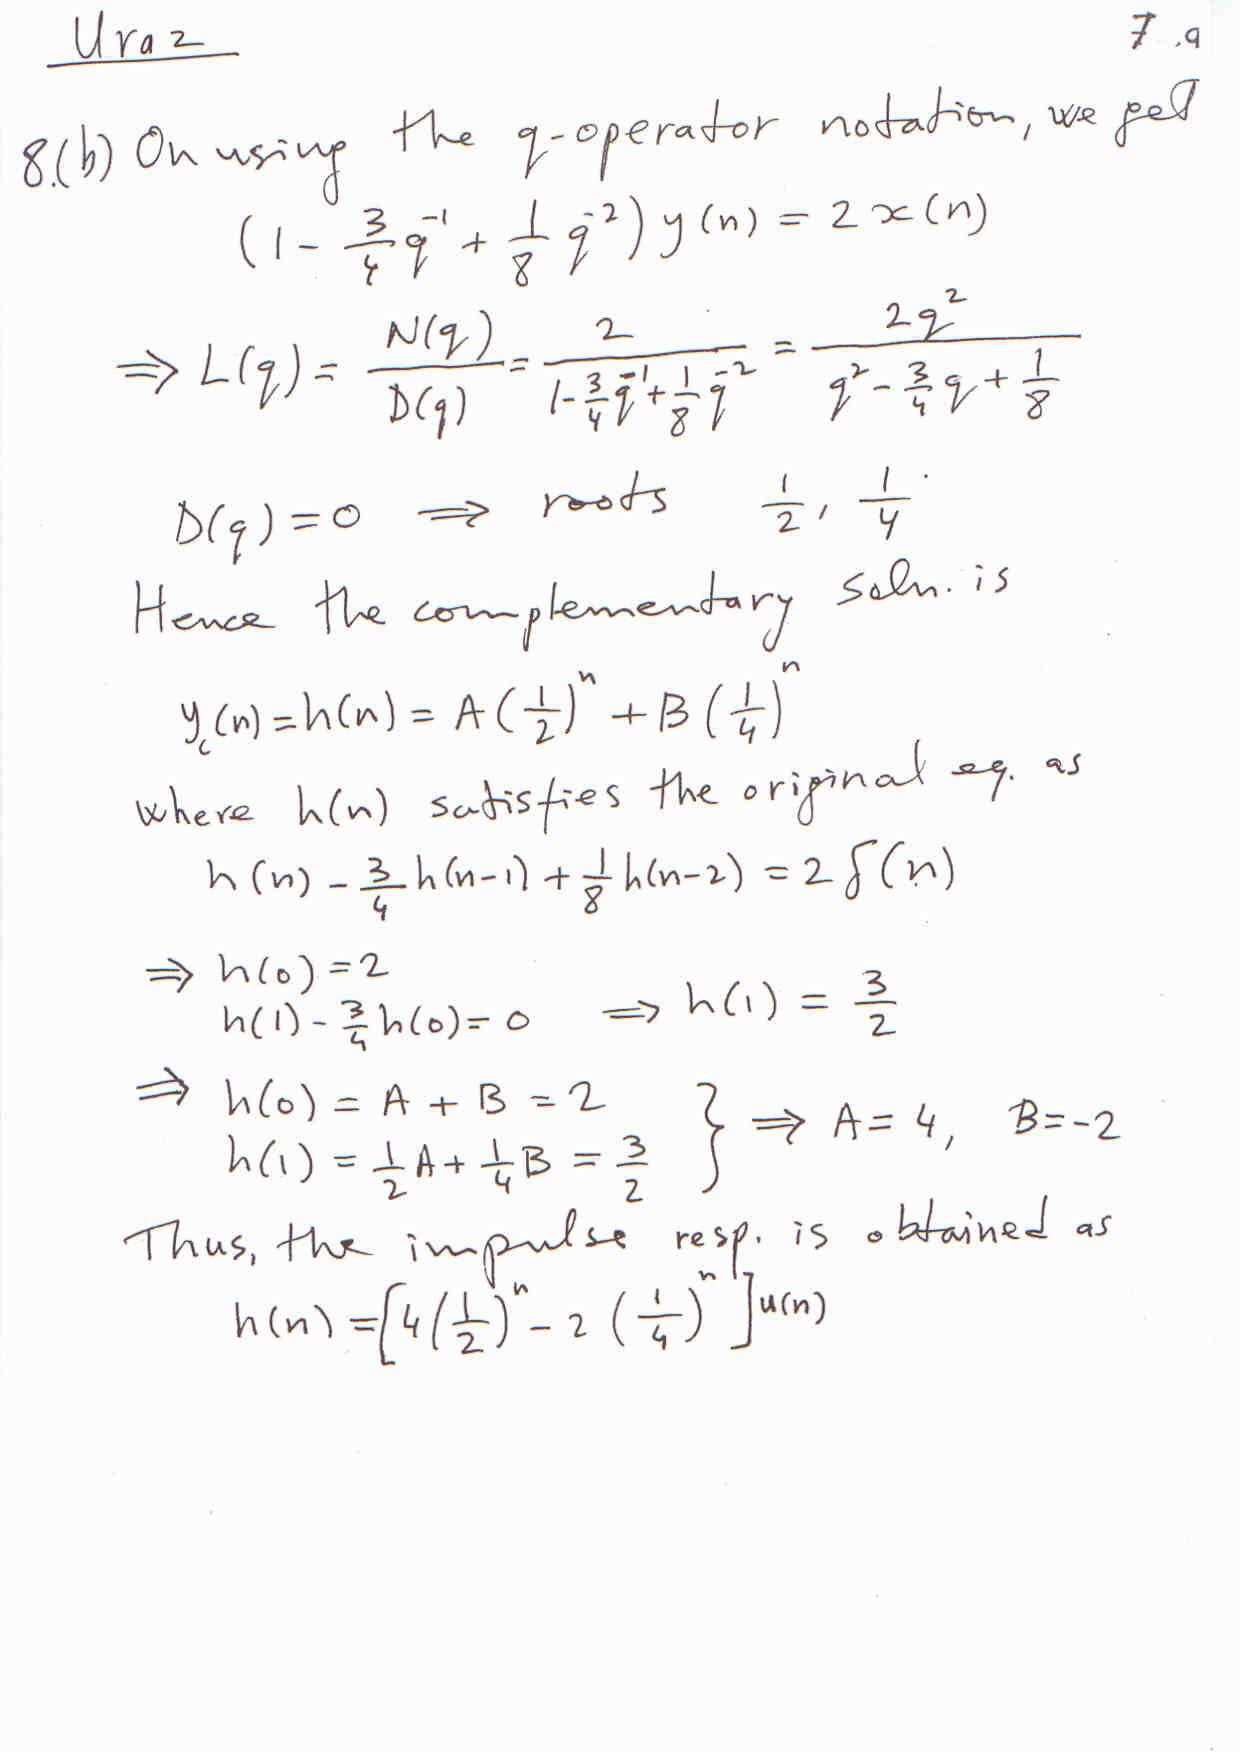 Uraz 7.a
8.(b) On using the q-operator notation, we get
(1 - 3/4 q^-1 + 1/8 q^-2) y(n) = 2x(n)
⇒ L(q) = N(q)/D(q) = 2/(1 - 3/4 q^-1 + 1/8 q^-2) = 2q^2/(q^2 - 3/4 q + 1/8)
D(q) = 0 ⇒ roots 1/2, 1/4.
Hence the complementary soln. is
y_c(n) = h(n) = A(1/2)^n + B(1/4)^n
where h(n) satisfies the original eq. as
h(n) - 3/4 h(n-1) + 1/8 h(n-2) = 2δ(n)
⇒ h(0) = 2
h(1) - 3/4 h(0) = 0 ⇒ h(1) = 3/2
⇒ h(0) = A + B = 2
h(1) = 1/2 A + 1/4 B = 3/2 } ⇒ A = 4, B = -2
Thus, the impulse resp. is obtained as
h(n) = [4(1/2)^n - 2(1/4)^n] u(n)